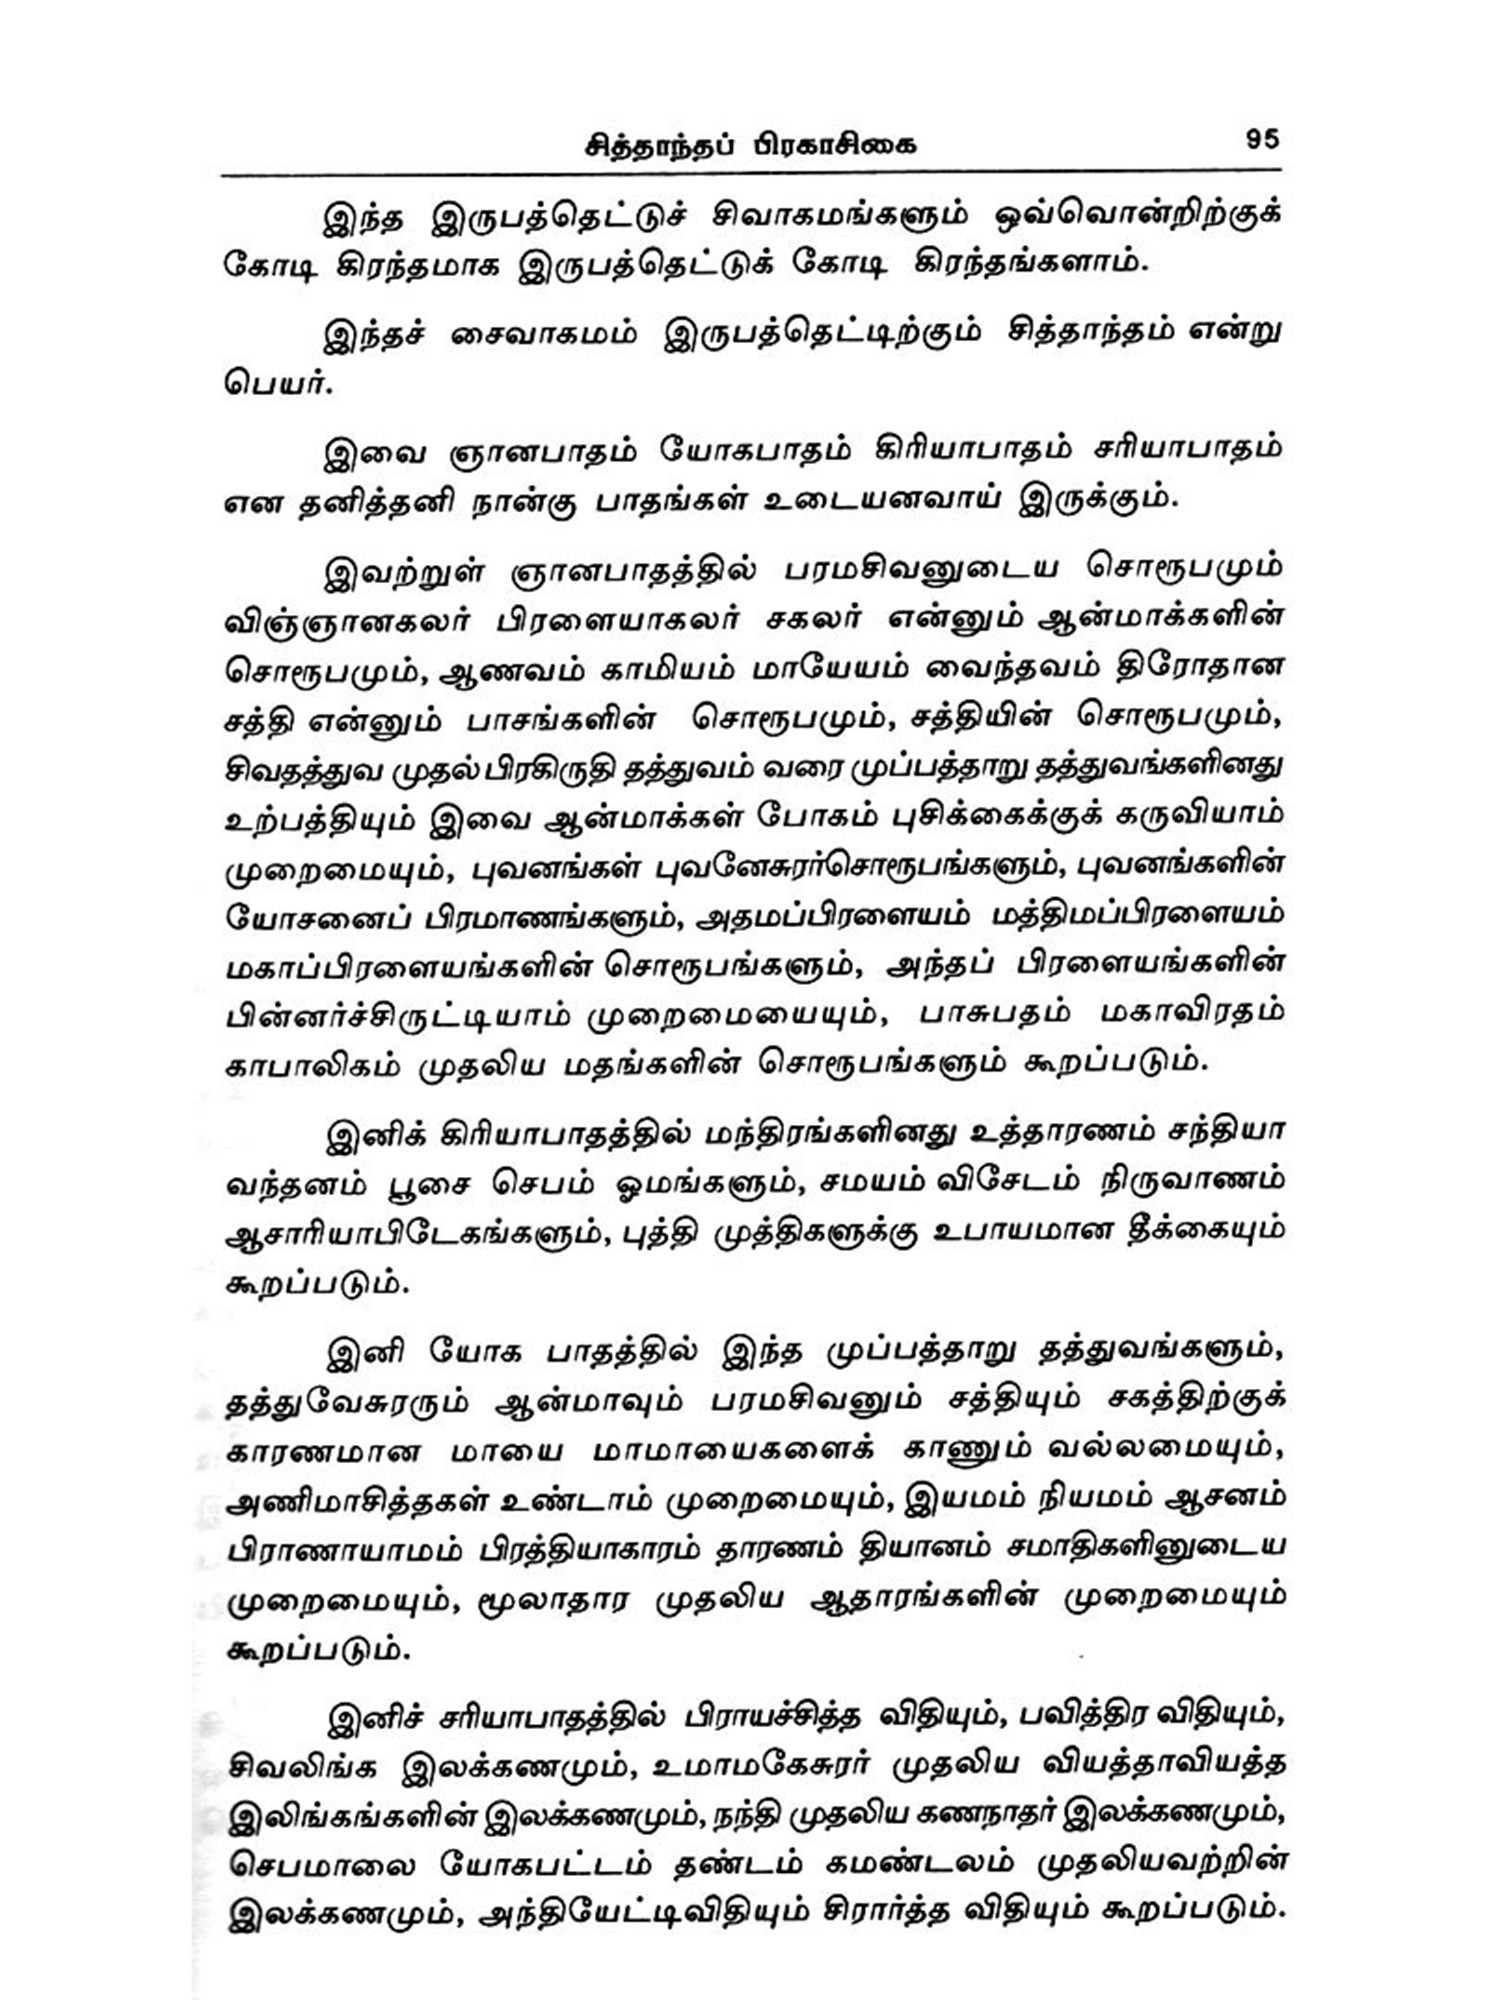 சித்தாந்தப் பிரகாசிகை 95
இந்த இருபத்தெட்டுச் சிவாகமங்களும் ஒவ்வொன்றிற்குக்
கோடி கிரந்தமாக இருபத்தெட்டுக் கோடி கிரந்தங்களாம்.
இந்தச் சைவாகமம் இருபத்தெட்டிற்கும் சித்தாந்தம் என்று
பெயர்.
இவை ஞானபாதம் யோகபாதம் கிரியாபாதம் சரியாபாதம்
என தனித்தனி நான்கு பாதங்கள் உடையனவாய் இருக்கும்.
இவற்றுள் ஞானபாதத்தில் பரமசிவனுடைய சொரூபமும்
விஞ்ஞானகலர் பிரளையாகலர் சகலர் என்னும் ஆன்மாக்களின்
சொரூபமும், ஆணவம் காமியம் மாயேயம் வைந்தவம் திரோதான
சத்தி என்னும் பாசங்களின் சொரூபமும், சத்தியின் சொரூபமும்,
சிவதத்துவ முதல் பிரகிருதி தத்துவம் வரை முப்பத்தாறு தத்துவங்களினது
உற்பத்தியும் இவை ஆன்மாக்கள் போகம் புசிக்கைக்குக் கருவியாம்
முறைமையும், புவனங்கள் புவனேசுரர்சொரூபங்களும், புவனங்களின்
யோசனைப் பிரமாணங்களும், அதமப்பிரளையம் மத்திமப்பிரளையம்
மகாப்பிரளையங்களின் சொரூபங்களும், அந்தப் பிரளையங்களின்
பின்னர்ச்சிருட்டியாம் முறைமையையும், பாசுபதம் மகாவிரதம்
காபாலிகம் முதலிய மதங்களின் சொரூபங்களும் கூறப்படும்.
இனிக் கிரியாபாதத்தில் மந்திரங்களினது உத்தாரணம் சந்தியா
வந்தனம் பூசை செபம் ஓமங்களும், சமயம் விசேடம் நிருவாணம்
ஆசாரியாபிடேகங்களும், புத்தி முத்திகளுக்கு உபாயமான தீக்கையும்
கூறப்படும்.
இனி யோக பாதத்தில் இந்த முப்பத்தாறு தத்துவங்களும்,
தத்துவேசுரரும் ஆன்மாவும் பரமசிவனும் சத்தியும் சகத்திற்குக்
காரணமான மாயை மாமாயைகளைக் காணும் வல்லமையும்,
அணிமாசித்தகள் உண்டாம் முறைமையும், இயமம் நியமம் ஆசனம்
பிராணாயாமம் பிரத்தியாகாரம் தாரணம் தியானம் சமாதிகளினுடைய
முறைமையும், மூலாதார முதலிய ஆதாரங்களின் முறைமையும்
கூறப்படும்.
இனிச் சரியாபாதத்தில் பிராயச்சித்த விதியும், பவித்திர விதியும்,
சிவலிங்க இலக்கணமும், உமாமகேசுரர் முதலிய வியத்தாவியத்த
இலிங்கங்களின் இலக்கணமும், நந்தி முதலிய கணநாதர் இலக்கணமும்,
செபமாலை யோகபட்டம் தண்டம் கமண்டலம் முதலியவற்றின்
இலக்கணமும், அந்தியேட்டிவிதியும் சிரார்த்த விதியும் கூறப்படும்.